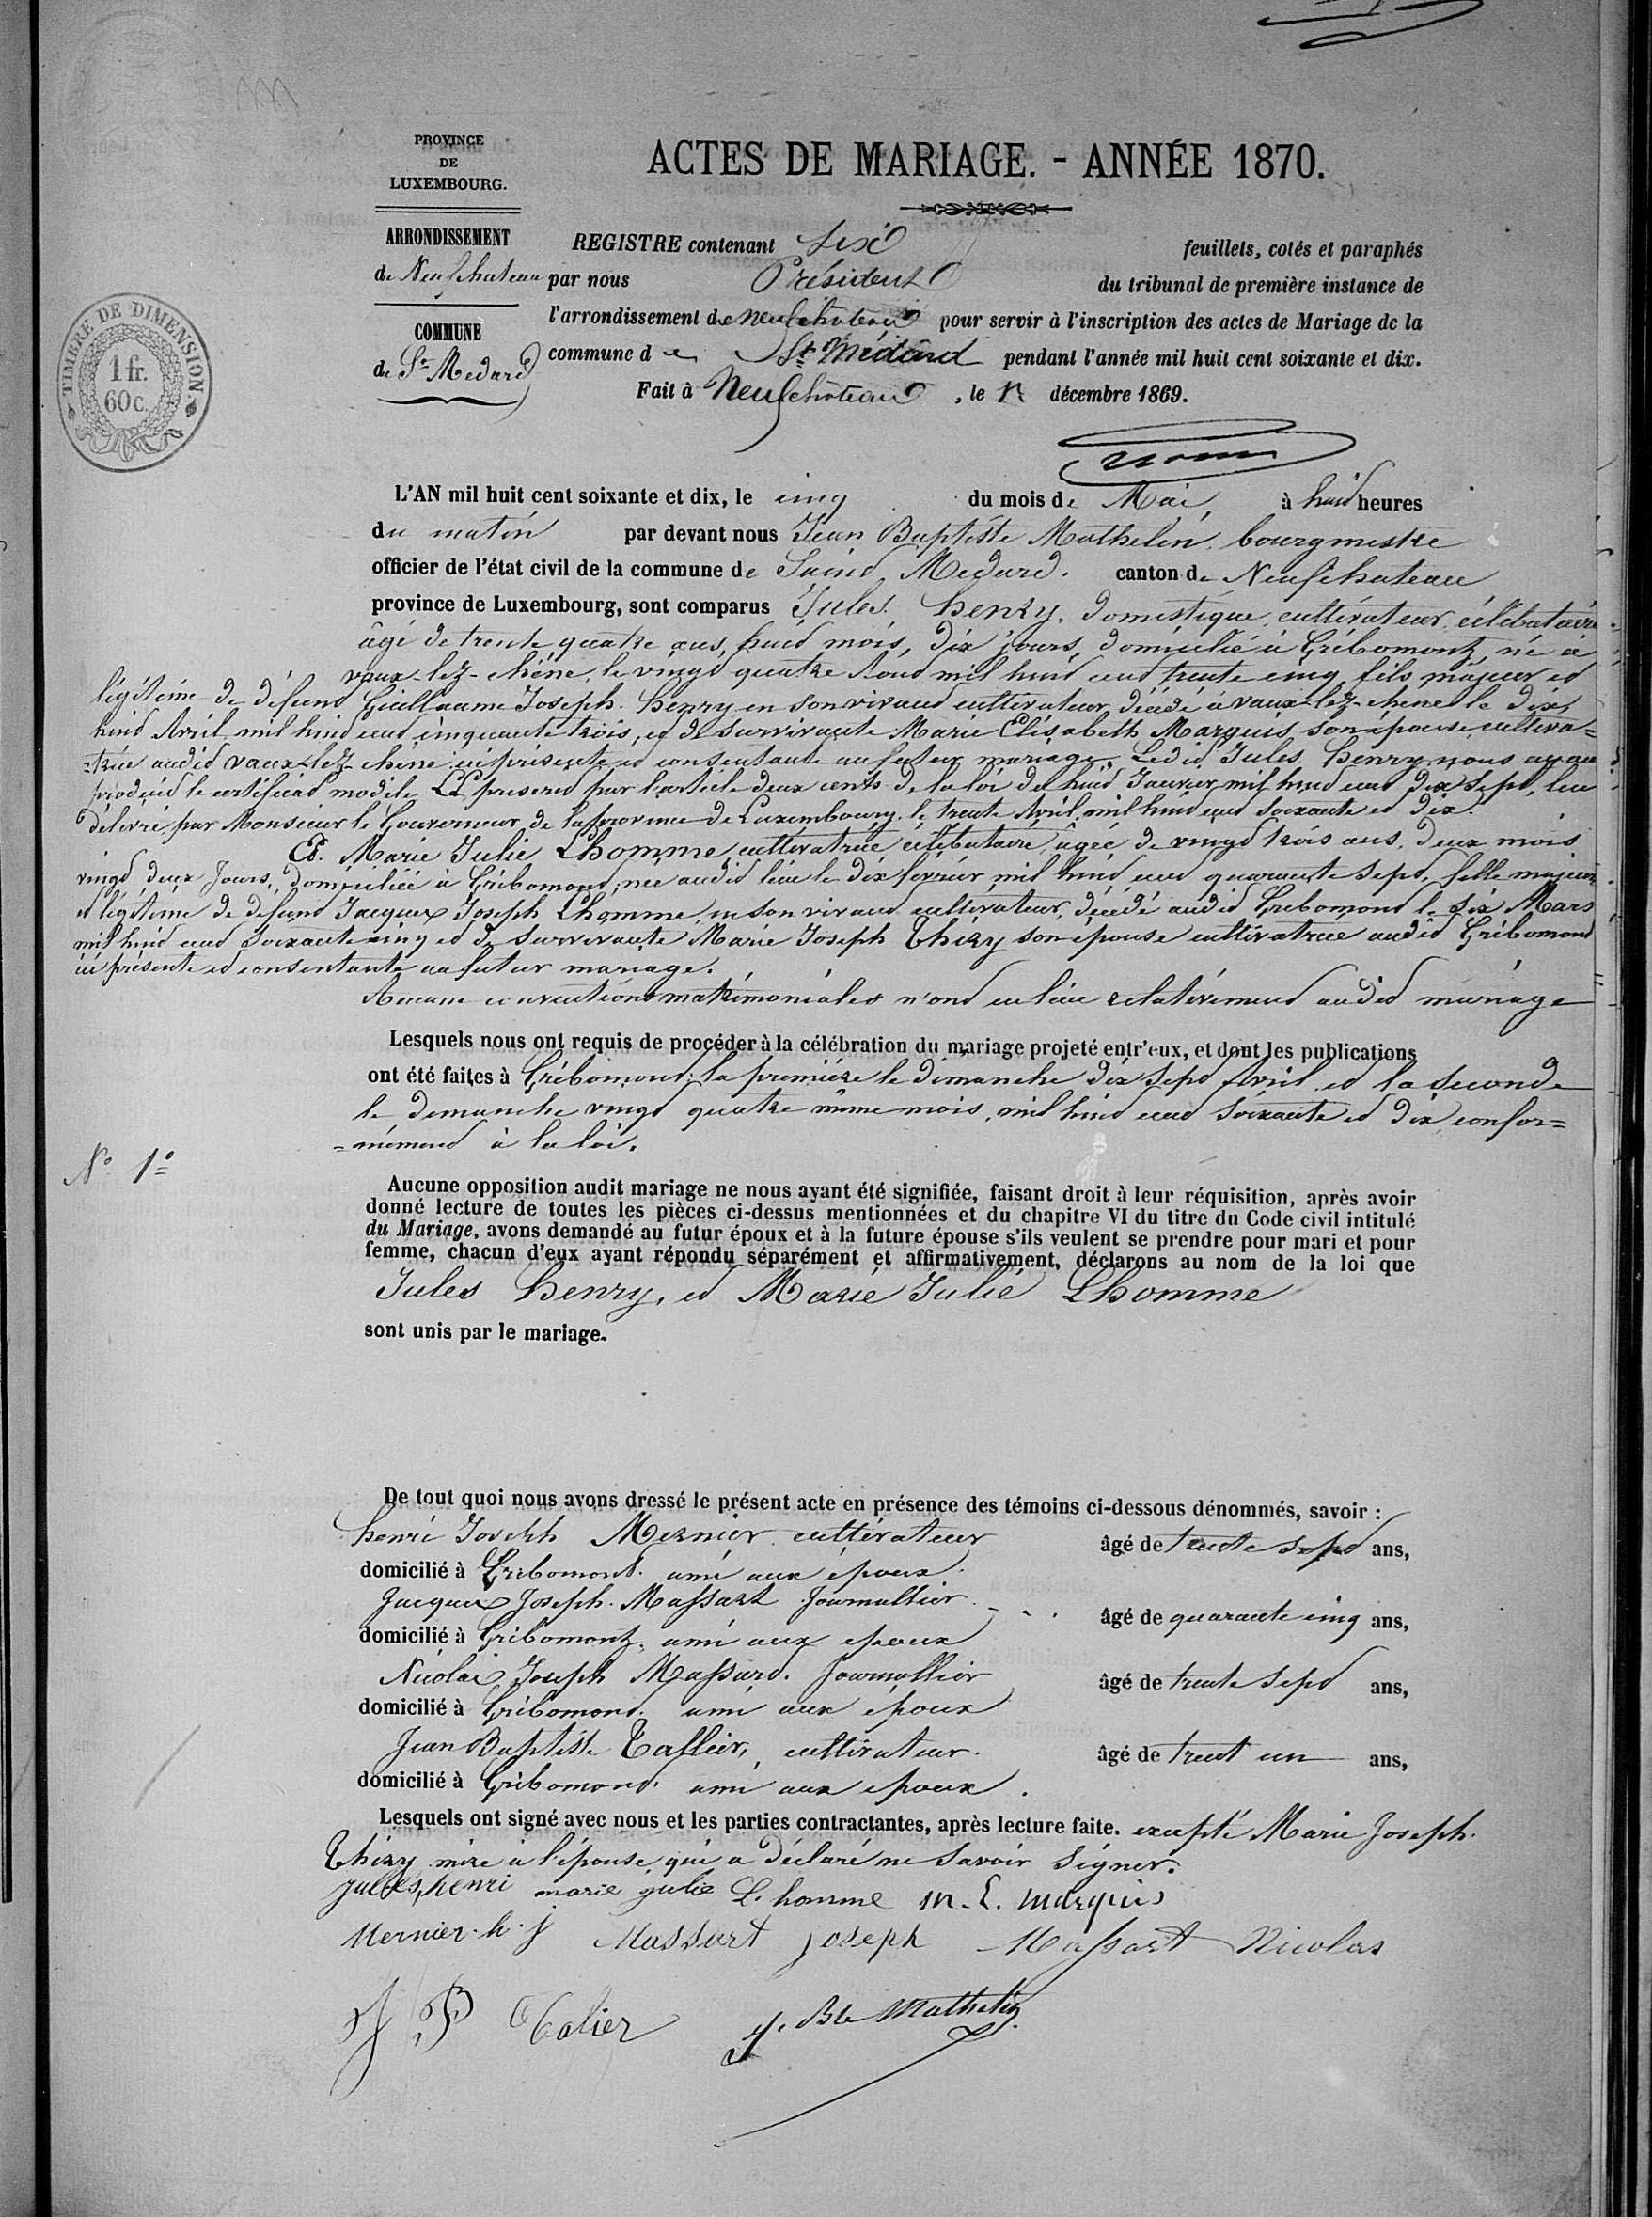 PROVINCE
DE
LUXEMBOURG.
ARRONDISSEMENT
de Neufchateau
COMMUNE
de St Medard
TIMBRE DE DIMENSION
1 fr.
60 c.
ACTES DE MARIAGE. - ANNÉE 1870.
REGISTRE contenant six feuillets, cotés et paraphés
par nous Président du tribunal de première instance de
l'arrondissement de neufchateau pour servir à l'inscription des actes de Mariage de la
commune de St Médard pendant l'année mil huit cent soixante et dix.
Fait à Neufchateau, le décembre 1869.
L'AN mil huit cent soixante et dix, le cinq du mois de Mai, à huid heures
du matin par devant nous Jean Baptiste Mathelin, bourgmestre
officier de l'état civil de la commune de Saind Medard. canton de Neufchateau
province de Luxembourg, sont comparus Jules Henry, domestique, cultivateur, célibataire
âgé de trente quatre ans, huid mois, dix jours, domicilié à Gribomont, né à
vaux-lez-chêne, le vingd quatre Aoud mil huid cend trente cinq, fils majeur ed
légitime de défund Guillaume Joseph Henry en son vivand cultivateur, décédé à vaux-lez-chene le dix
huid Avril mil huid cend cinquante trois, ed de survivante Marie Elisabeth Marquis son épouse cultiva=
=trice audid vaux-lez-chêne ici présente ed consentante au futur mariage. Ledid Jules Henry nous ayand
produid le certificad modèle LL prescrid par l'article deux cents de la loi du huid Janvier mil huid cend dix sept, lui
délivré par Monsieur le Gouverneur de la province de Luxembourg, le trente Avril mil huid cend soixante ed dix.
Ed. Marie Julie Lhomme cultivatrice célibataire, âgée de vingd trois ans, deux mois
vingd deux Jours, domiciliée à Gribomond, née audid lieu le dix février mil huid cend quarante sepd, fille majeure
ed légitime de défund Jacques Joseph Lhomme, en son vivand cultivateur, décédé audid Gribomond le six Mars
mil huid cend soixante cinq ed de survivante Marie Joseph Thiry son épouse cultivatrice audid Gribomond
ici présente ed consentante au futur mariage.
Aucune conventions matrimoniales n'ond eu lieu relativemend audid mariage
Lesquels nous ont requis de procéder à la célébration du mariage projeté entr'eux, et dont les publications
ont été faites à Gribomond, la première le dimanche dix sepd Avril ed la seconde
le dimanche vingd quatre même mois, mil huid cend soixante ed dix confor=
=mémend à la loi.
N° 1°
Aucune opposition audit mariage ne nous ayant été signifiée, faisant droit à leur réquisition, après avoir
donné lecture de toutes les pièces ci-dessus mentionnées et du chapitre VI du titre du Code civil intitulé
du Mariage, avons demandé au futur époux et à la future épouse s'ils veulent se prendre pour mari et pour
femme, chacun d'eux ayant répondu séparément et affirmativement, déclarons au nom de la loi que
Jules Henry, ed Marie Julie Lhomme
sont unis par le mariage.
De tout quoi nous avons dressé le présent acte en présence des témoins ci-dessous dénommés, savoir :
Henri Joseph Mernier cultivateur âgé de trente sepd ans,
domicilié à Gribomont. ami aux époux.
Jacques Joseph Massart Journallier âgé de quarante cinq ans,
domicilié à Gribomont, ami aux époux
Nicolas Joseph Massard. Journallier âgé de trente sepd ans,
domicilié à Gribomond. ami aux époux
Jean Baptiste Taflier, cultivateur. âgé de trent un ans,
domicilié à Gribomond. ami aux époux.
Lesquels ont signé avec nous et les parties contractantes, après lecture faite. excepté Marie Joseph
Thiry mire à l'épouse qui a déclaré ne savoir signer.
Jules henri marie julie L. homme M. E. Marquis
Mernier. h. j Massart joseph Massart Nicolas
J B Talier J. Bte Mathelin